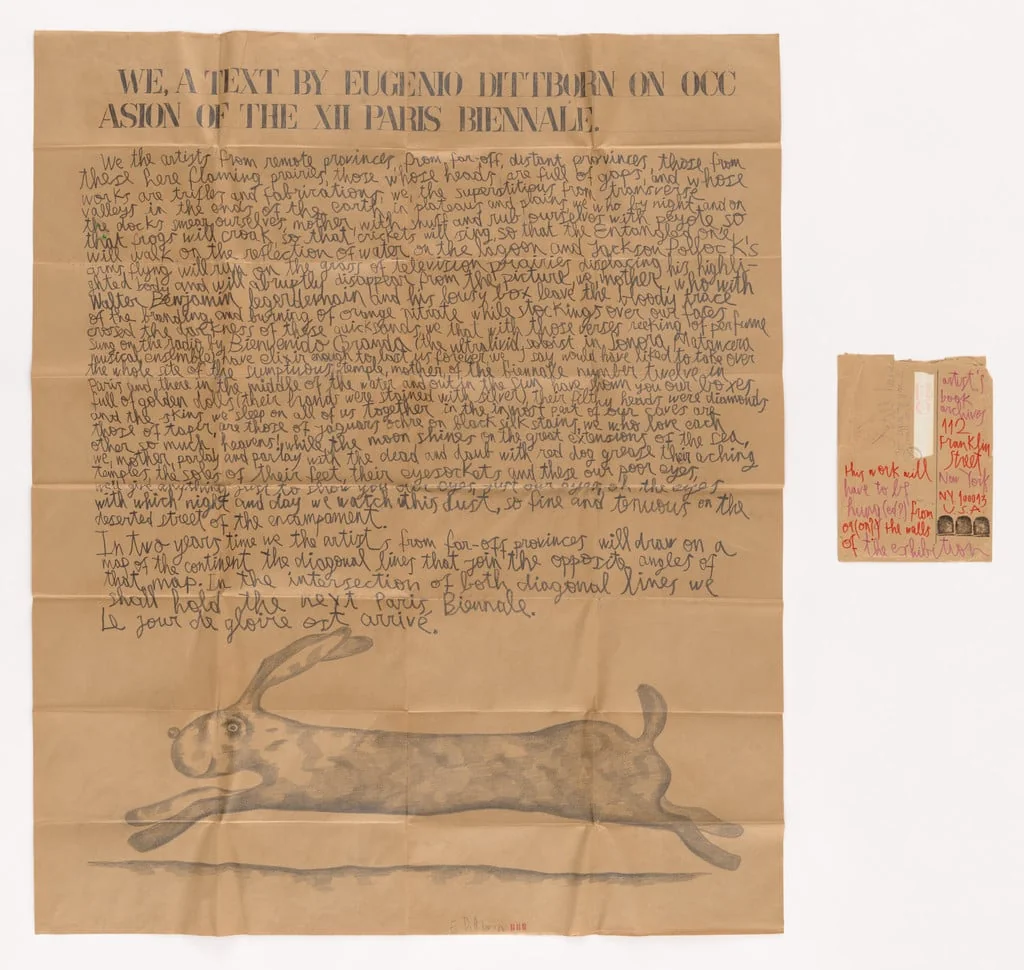 WE, A TEXT BY EUGENIO DITTBORN ON OCC
ASION OF THE XII PARIS BIENNALE.
We the artists from remote provinces, from far-off, distant provinces, those from
these here flaming prairies, those whose heads are full of gaps, and whose
works are trifles and fabrications, we, the superstitious from transverse
valleys in the ends of the earth, in plateaus and plains, we who by night and on
the docks smear ourselves, mother, with snuff and rub ourselves with peyote so
that frogs will croak, so that crickets will sing, so that the Entangled one
will walk on the reflection of water, on the lagoon and Jackson Pollock's
arms flying will run on the grass of television prairies displacing his highli-
ghted body and will abruptly disappear from the picture, we mother, who with
Walter Benjamin legerdemain and his lousy box leave the bloody trace
of the branding and burning of orange nitrate while stockings over our faces
crossed the darkness of these quicksands, we that with those verses reeking of perfume
sung on the radio by Bienvenido Granda (the ultralivid soloist in Sonora Matancera
musical ensemble) have elixir enough to last us forever, we, I say would have liked to take over
the whole site of the sumptuous temple, mother, of the Biennale number twelve in
Paris and, there in the middle of the water and out in the sun have shown you our boxes
full of golden dolls (their hands were stained with silver), their filthy heads were diamonds
and the skins we sleep on all of us together in the inmost part of our caves are
those of tapir, are those of jaguars ochre on black silk stains, we who love each
other so much, heavens! while the moon shines on the great extensions of the sea,
we, mother, parlay and parlay with the dead and daub with red dog grease their aching
temples the soles of their feet, their eyesockets and these our poor eyes,
will give anything just to show you our eyes, just our eyes, oh the eyes
with which night and day we watch this dust, so fine and tenuous on the
deserted street of the encampment.
In two years time we the artists from far-off provinces will draw on a
map of the continent the diagonal lines that join the opposite angles of
that map. In the intersection of both diagonal lines we
shall hold the next Paris Biennale.
Le jour de gloire est arrivé.
E Dittborn
artist's
book
archives
112
Franklin
Street
New York
NY 10013
U.S.A
this work will
have to be
hung(ed?) from
or(on?) the walls
of the exhibition